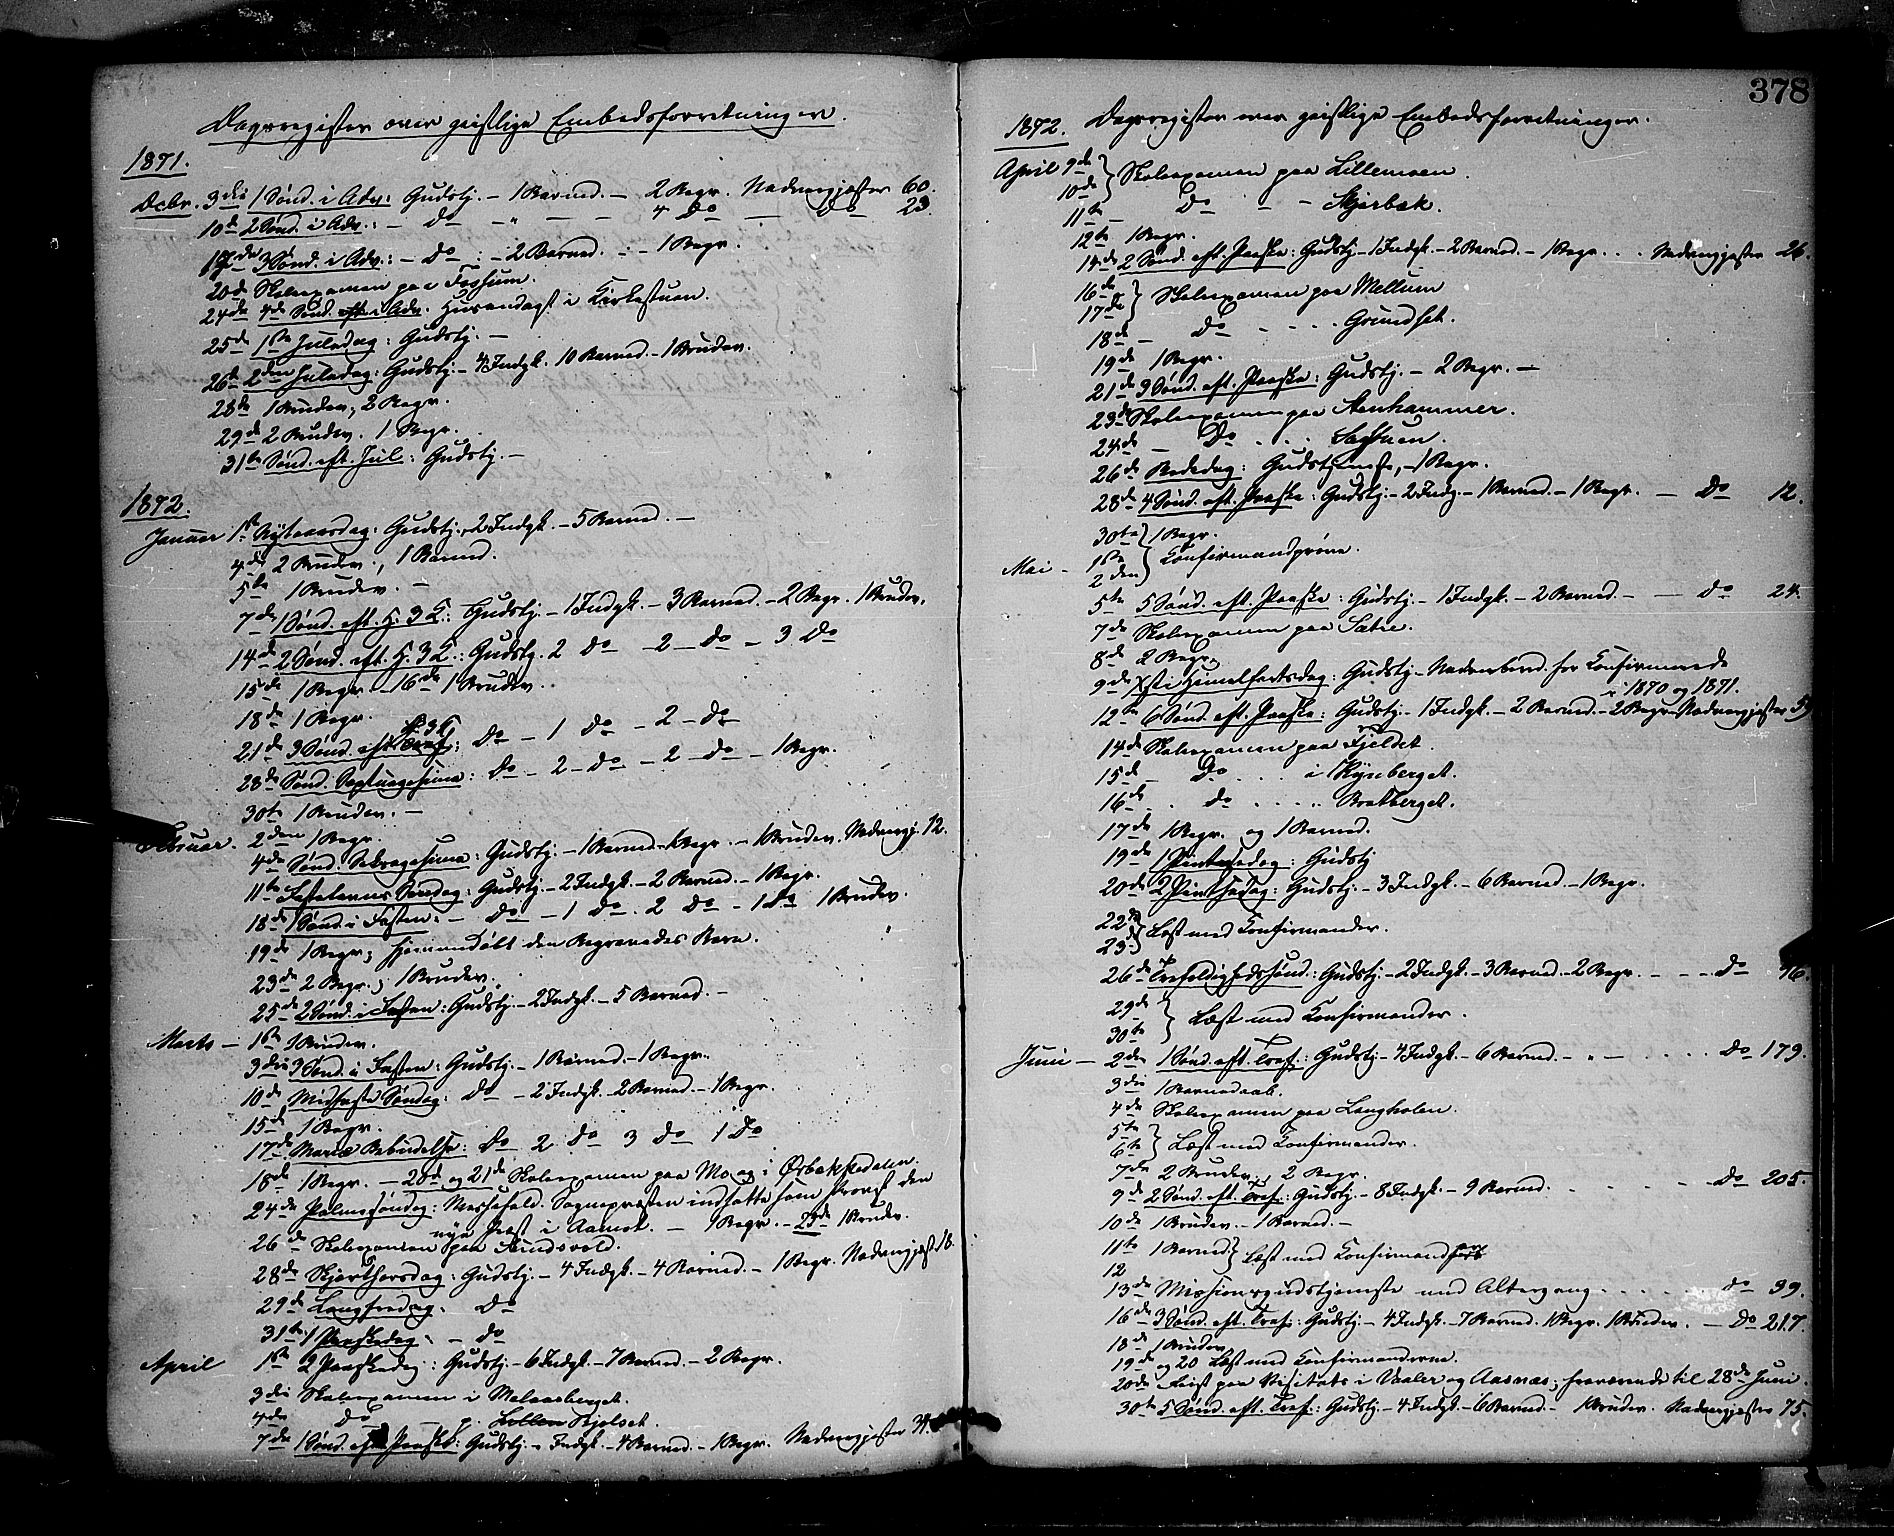 Dagsregister over geistlige Embedsforretninger.
1871.
Decbr. 3die 1 Sønd. i Adv: Gudstj. – 1 Barned. – 2 Begr. Nadvergjæster 60.
10de 2 Sønd. i Adv.: – Do – " – – 4 Do – Do 23.
17de 3 Sønd. i Adv.: – Do : – 2 Barned. : – 1 Begr.
20de Skoleexamen paa Fossum.
24de 4de Sønd. i Adv. Husandagt i Kirkestuen.
25de 1ste Juledag: Gudstj. –
26de 2den Juledag: Gudstj. – 4 Indgk. 10 Barned. – 1 Brudev.
28de 1 Brudev., 2 Begr.
29de 2 Brudev. 1 Begr.
31te Sønd. eft. Jul: Gudstj. –
1872.
Januar 1ste Nytaarsdag: Gudstj. 2 Indgk. – 5 Barned. –
4de 2 Brudev., 1 Barned.
5te 1 Brudev. –
7de 1 Sønd. eft. H. 3 K.: Gudstj. – 1 Indgk. – 3 Barned. – 2 Begr. 1 Brudev.
14de 2 Sønd. eft. H. 3 K.: Gudstj. 2 Do – 2 – Do – 3 Do
15de 1 Begr. – 16de 1 Brudev.
18de 1 Begr.
21de 3 Sønd. eft. H. 3 K: Do – 1 Do – 2 – Do
28de Sønd. Septuagesima: Do – 2 – Do – 2 – Do – 1 Begr.
30te 1 Brudev. –
Februar. 2den 1 Begr.
4de Sønd. Sexagesima: Gudstj. – 1 Barned – 1 Begr. – 1 Brudev. Nadvergj. 12.
11te Fastelavns Søndag: Gudstj. – 2 Indgk. – 2 Barned. – 1 Begr.
18de 1 Sønd. i Fasten: – Do – 1 Do. 2 Do – 1 Do 1 Brudev.
19de 1 Begr; hjemmedøbt den Begravedes Barn.
23de 2 Begr.; 1 Brudev.
25de 2 Sønd. i Fasten: Gudstj. – 2 Indgk. – 5 Barned. –
Marts – 1ste 1 Brudev.
3die 3 Sønd. i Fasten: Gudstj. – 1 Barned. – 1 Begr.
10de Midfaste Søndag: Do – 2 Indgk. – 2 Barned. – 1 Begr.
15de 1 Begr.
17de Mariæ Bebudelse: Do 2 Do 3 Do 1 Do
18de 1 Begr. – 20de og 21de Skoleexamen paa Mo og i Ørbækkedalen.
24de Palmesøndag. Messefald. Sognepræsten indsatte som Provst den
nye Præst i Aamot. – 1 Begr. – 23de 1 Brudv.
26de Skoleexamen paa Sundsvold.
28de Skjærthorsdag: Gudstj. – 4 Indgk. – 4 Barned. – 1 Begr. Nadvergjæst 18.
29de Langfredag. Do
31te 1 Paaskedag. – Do
April 1ste 2 Paaskedag: Gudstj. – 6 Indgk. – 7 Barned. – 2 Begr.
3die Skoleexamen i Melaasberget.
4de Do p. Kjølset.
7de 1 Sønd. eft. Paaske: Gudstj. – Indgk. – 4 Barned. – 1 Begr. Nadvergjæster 34.
378
1872. Dagsregister over geistlige Embedsforretninger.
April 9de
10de } Skoleexamen paa Lillemoen.
11te – Do – – Skjærbæk.
12te 1 Begr.
14de 2 Sønd. eft. Paaske: Gudstj. – 1 Indgk. – 2 Barned. – 1 Begr. . . . Nadvergjæster 26.
16de
17de } Skoleexamen paa Mellum
18de – Do . . . . Grundset.
19de 1 Begr.
21de 3 Sønd. eft. Paaske: Gudstj. – 2 Begr. –
23de Skoleexamen paa Stenhammer.
24de – Do . . . Sagstuen.
26de Bededag: Gudstjeneste, – 1 Begr.
28de 4 Sønd. eft. Paaske: Gudstj. – 2 Indg. – 1 Barned. – 1 Begr. – Do 12.
30te 1 Begr.
Mai – 1ste
2den } Konfirmandprøve.
5te 5 Sønd. eft. Paaske: Gudstj. – 1 Indgk. – 2 Barned. – – Do 24.
7de Skoleexamen paa Sætre.
8de 2 Begr.
9de Xsti Himelfartsdag: Gudstj. – Nadverbord for Konfirmerede
i 1870 og 1871.
12te 6 Sønd. eft. Paaske: Gudstj. – 1 Indgk. – 2 Barned. – 2 Begr. Nadvergjæster 59
14de Skoleexamen paa Fjeldet.
15de – Do . . . i Rynberget.
16de . . Do . . . . . Bratberget.
17de 1 Begr. og 1 Barned.
19de 1 Pintsedag: Gudstj
20de 2 Pintsedag: Gudstj. – 3 Indgk. – 6 Barned. – 1 Begr.
22de
23de } Læst med Konfirmander.
26de Trefoldighedssønd.: Gudstj. – 2 Indgk. – 3 Barned. – 2 Begr. – – – Do 76.
29de
30te } Læst med Konfirmander.
Juni – 2den 1 Sønd. eft. Tref: Gudstj. – 4 Indgk. – 6 Barned. – " – . . . . Do 179.
3die 1 Barnedaab.
4de Skoleexamen paa Langholen.
5te
6te } Læst med Konfirmander.
7de 2 Brudev. 2 Begr.
9de 2 Sønd. eft. Tref: Gudstj. – 8 Indgk. – 9 Barned. . . . . Do 205.
10de 1 Brudev. – 1 Barned. –
11te 1 Barned.
12 } Læst med Konfirmand
13de Missionsgudstjeneste med Altergang . . . . . Do 39.
16de 3 Sønd. eft. Tref: Gudstj. – 4 Indgk. – 7 Barned. 1 Begr. 1 Brudev. – Do 217.
18de 1 Brudev
19de og 20 Læst med Konfirmanderne.
20de Reist paa Visitats i Vaaler og Aasnæs; fraværende til 28de Juni.
30te 5 Sønd. eft. Tref: Gudstj. – 4 Indgk. – 6 Barned. – 1 Brudev. Nadvergjæster 75.